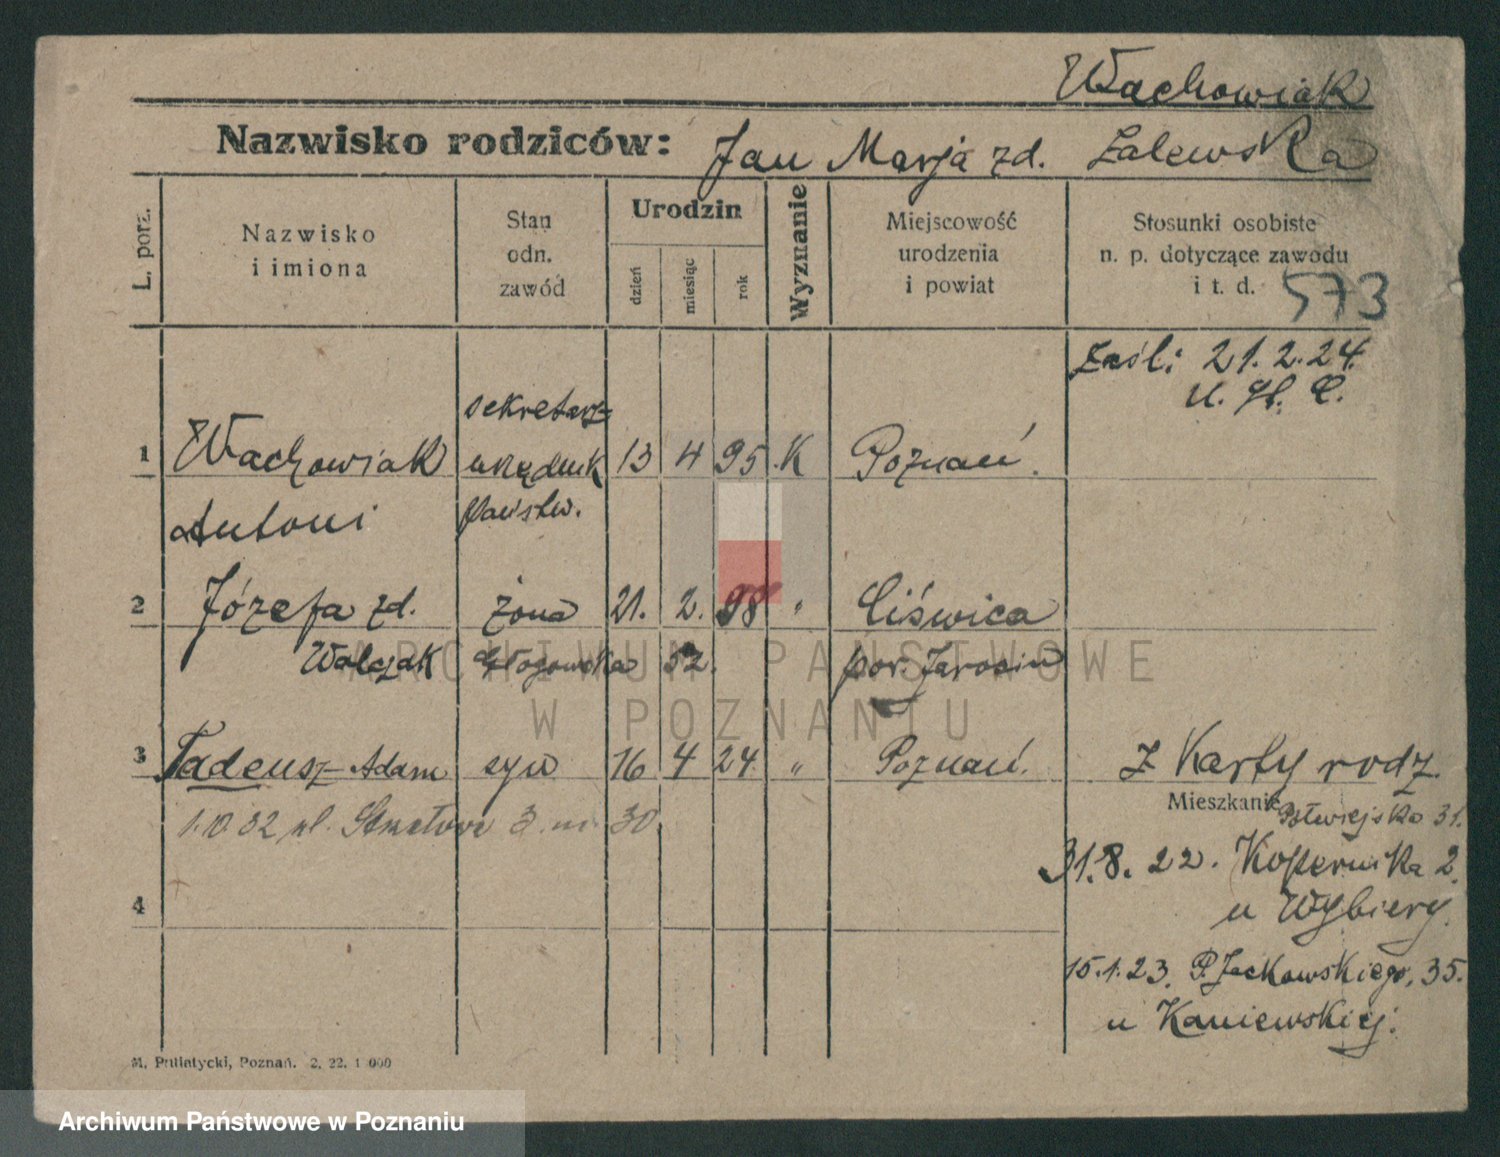 Wachowiak
Nazwisko rodziców: Jan Marja zd. Zalewska
L. porz.
Nazwisko
i imiona
Stan
odn.
zawód
Urodzin
dzień
miesiąc
rok
Wyznanie
Miejscowość
urodzenia
i powiat
Stosunki osobiste
n. p. dotyczące zawodu
i t. d. 573
21.2.24.
sekretarz
1 Wachowiak urzędnik 13 4 95 K Poznań.
Antoni państw.
2 Józefa zd. żona 21. 2. 98 " Ciświca
Walczak Głogowska 52. pow. Jarocin
3 Tadeusz-Adam syn 16 4 24 " Poznań. z Karty rodz.
Mieszkanie
31.
1.10 32 pl. 3. m. 30.
31.8.22. Kopernika 2.
4
u Wybiery
15.1.23. P. Jackowskiego, 35.
u Kaniewskiej.
M. Putiatycki, Poznań. 2. 22. 1 000
ARCHIWUM PAŃSTWOWE
W POZNANIU
Archiwum Państwowe w Poznaniu